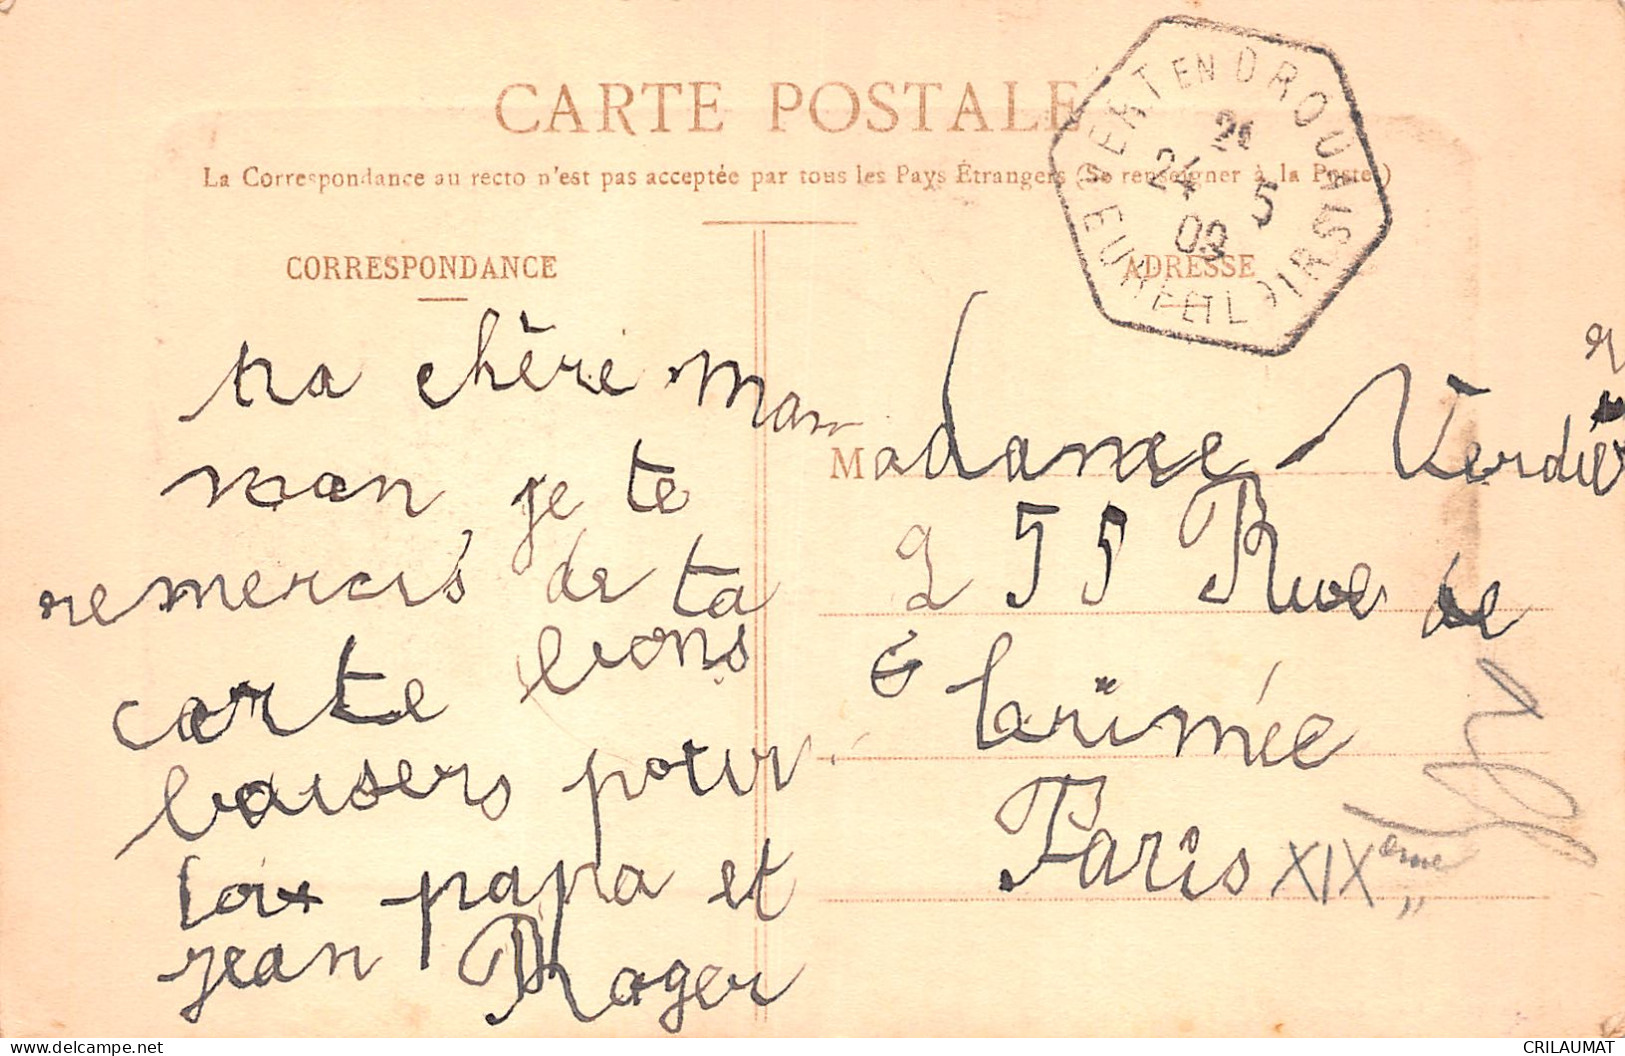 CARTE POSTALE
La Correspondance au recto n'est pas acceptée par tous les Pays Étrangers (Se renseigner à la Poste)
CORRESPONDANCE
ma chère Mam
man je te
remercis de ta
carte bons
baisers pour
toi papa et
jean Roger
VERT EN DROUAIS
21
24 5
09
EURE ET LOIR
ADRESSE
Madame Verdier
255 Rue de
Crimée
Paris XIXème
CRILAUMAT